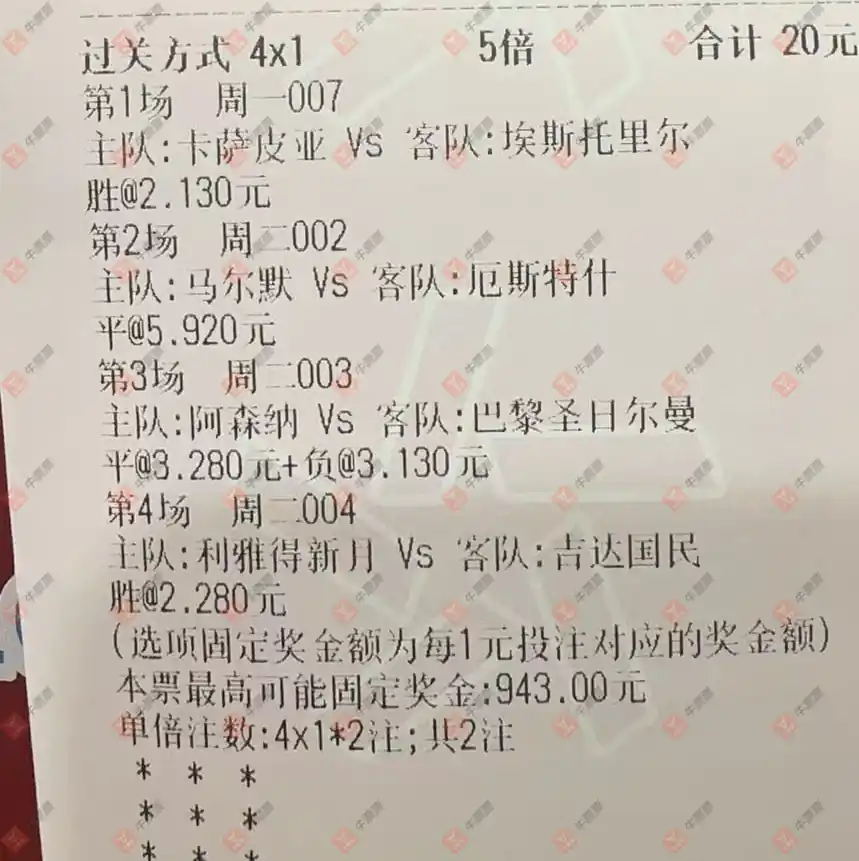 过关方式 4x1 5倍 合计 20元
第1场 周一007
主队:卡萨皮亚 Vs 客队:埃斯托里尔
胜@2.130元
第2场 周二002
主队:马尔默 Vs 客队:厄斯特什
平@5.920元
第3场 周二003
主队:阿森纳 Vs 客队:巴黎圣日尔曼
平@3.280元+负@3.130元
第4场 周二004
主队:利雅得新月 Vs 客队:吉达国民
胜@2.280元
(选项固定奖金额为每1元投注对应的奖金额)
本票最高可能固定奖金:943.00元
单倍注数:4x1*2注;共2注
* * *
* * *
* * *